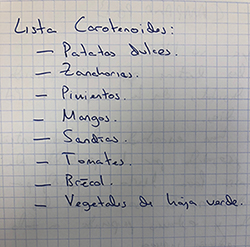 Lista Carotenoides:
— Patatas dulces.
— Zanahorias.
— Pimientos.
— Mangos.
— Sandías.
— Tomates.
— Brécol.
— Vegetales de hoja verde.